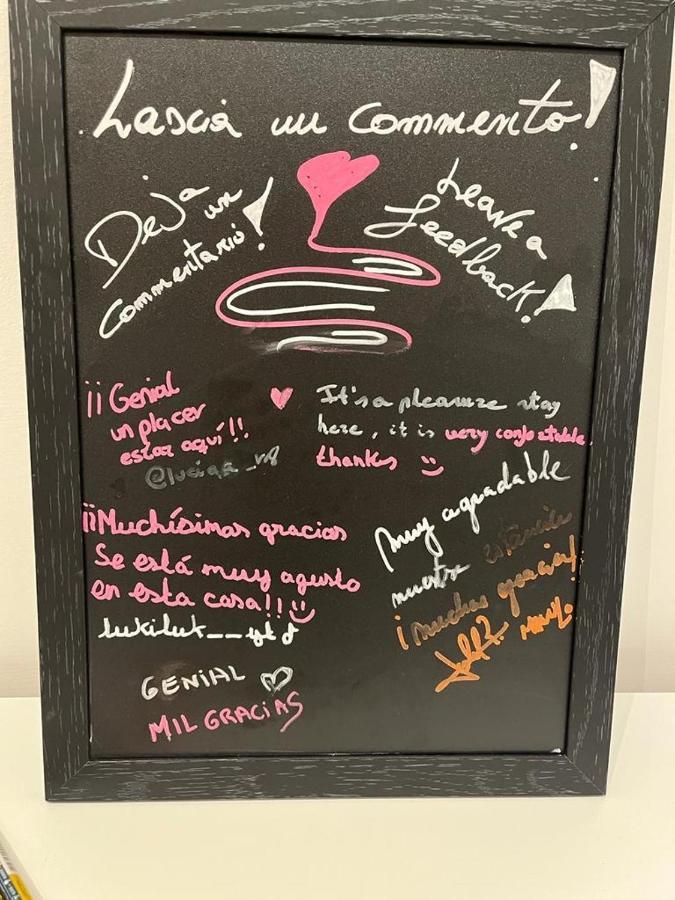 Lascia un commento!
Deja un
commentario!
Leave a
feedback!
¡¡Genial
un placer
estar aquí!!
It's a pleasure stay
here, it is very confortable.
thanks :)
Muy agradable
nuestra estancia
¡Muchas gracias!
¡¡Muchísimas gracias
Se está muy agusto
en esta casa!!
GENIAL
MIL GRACIAS